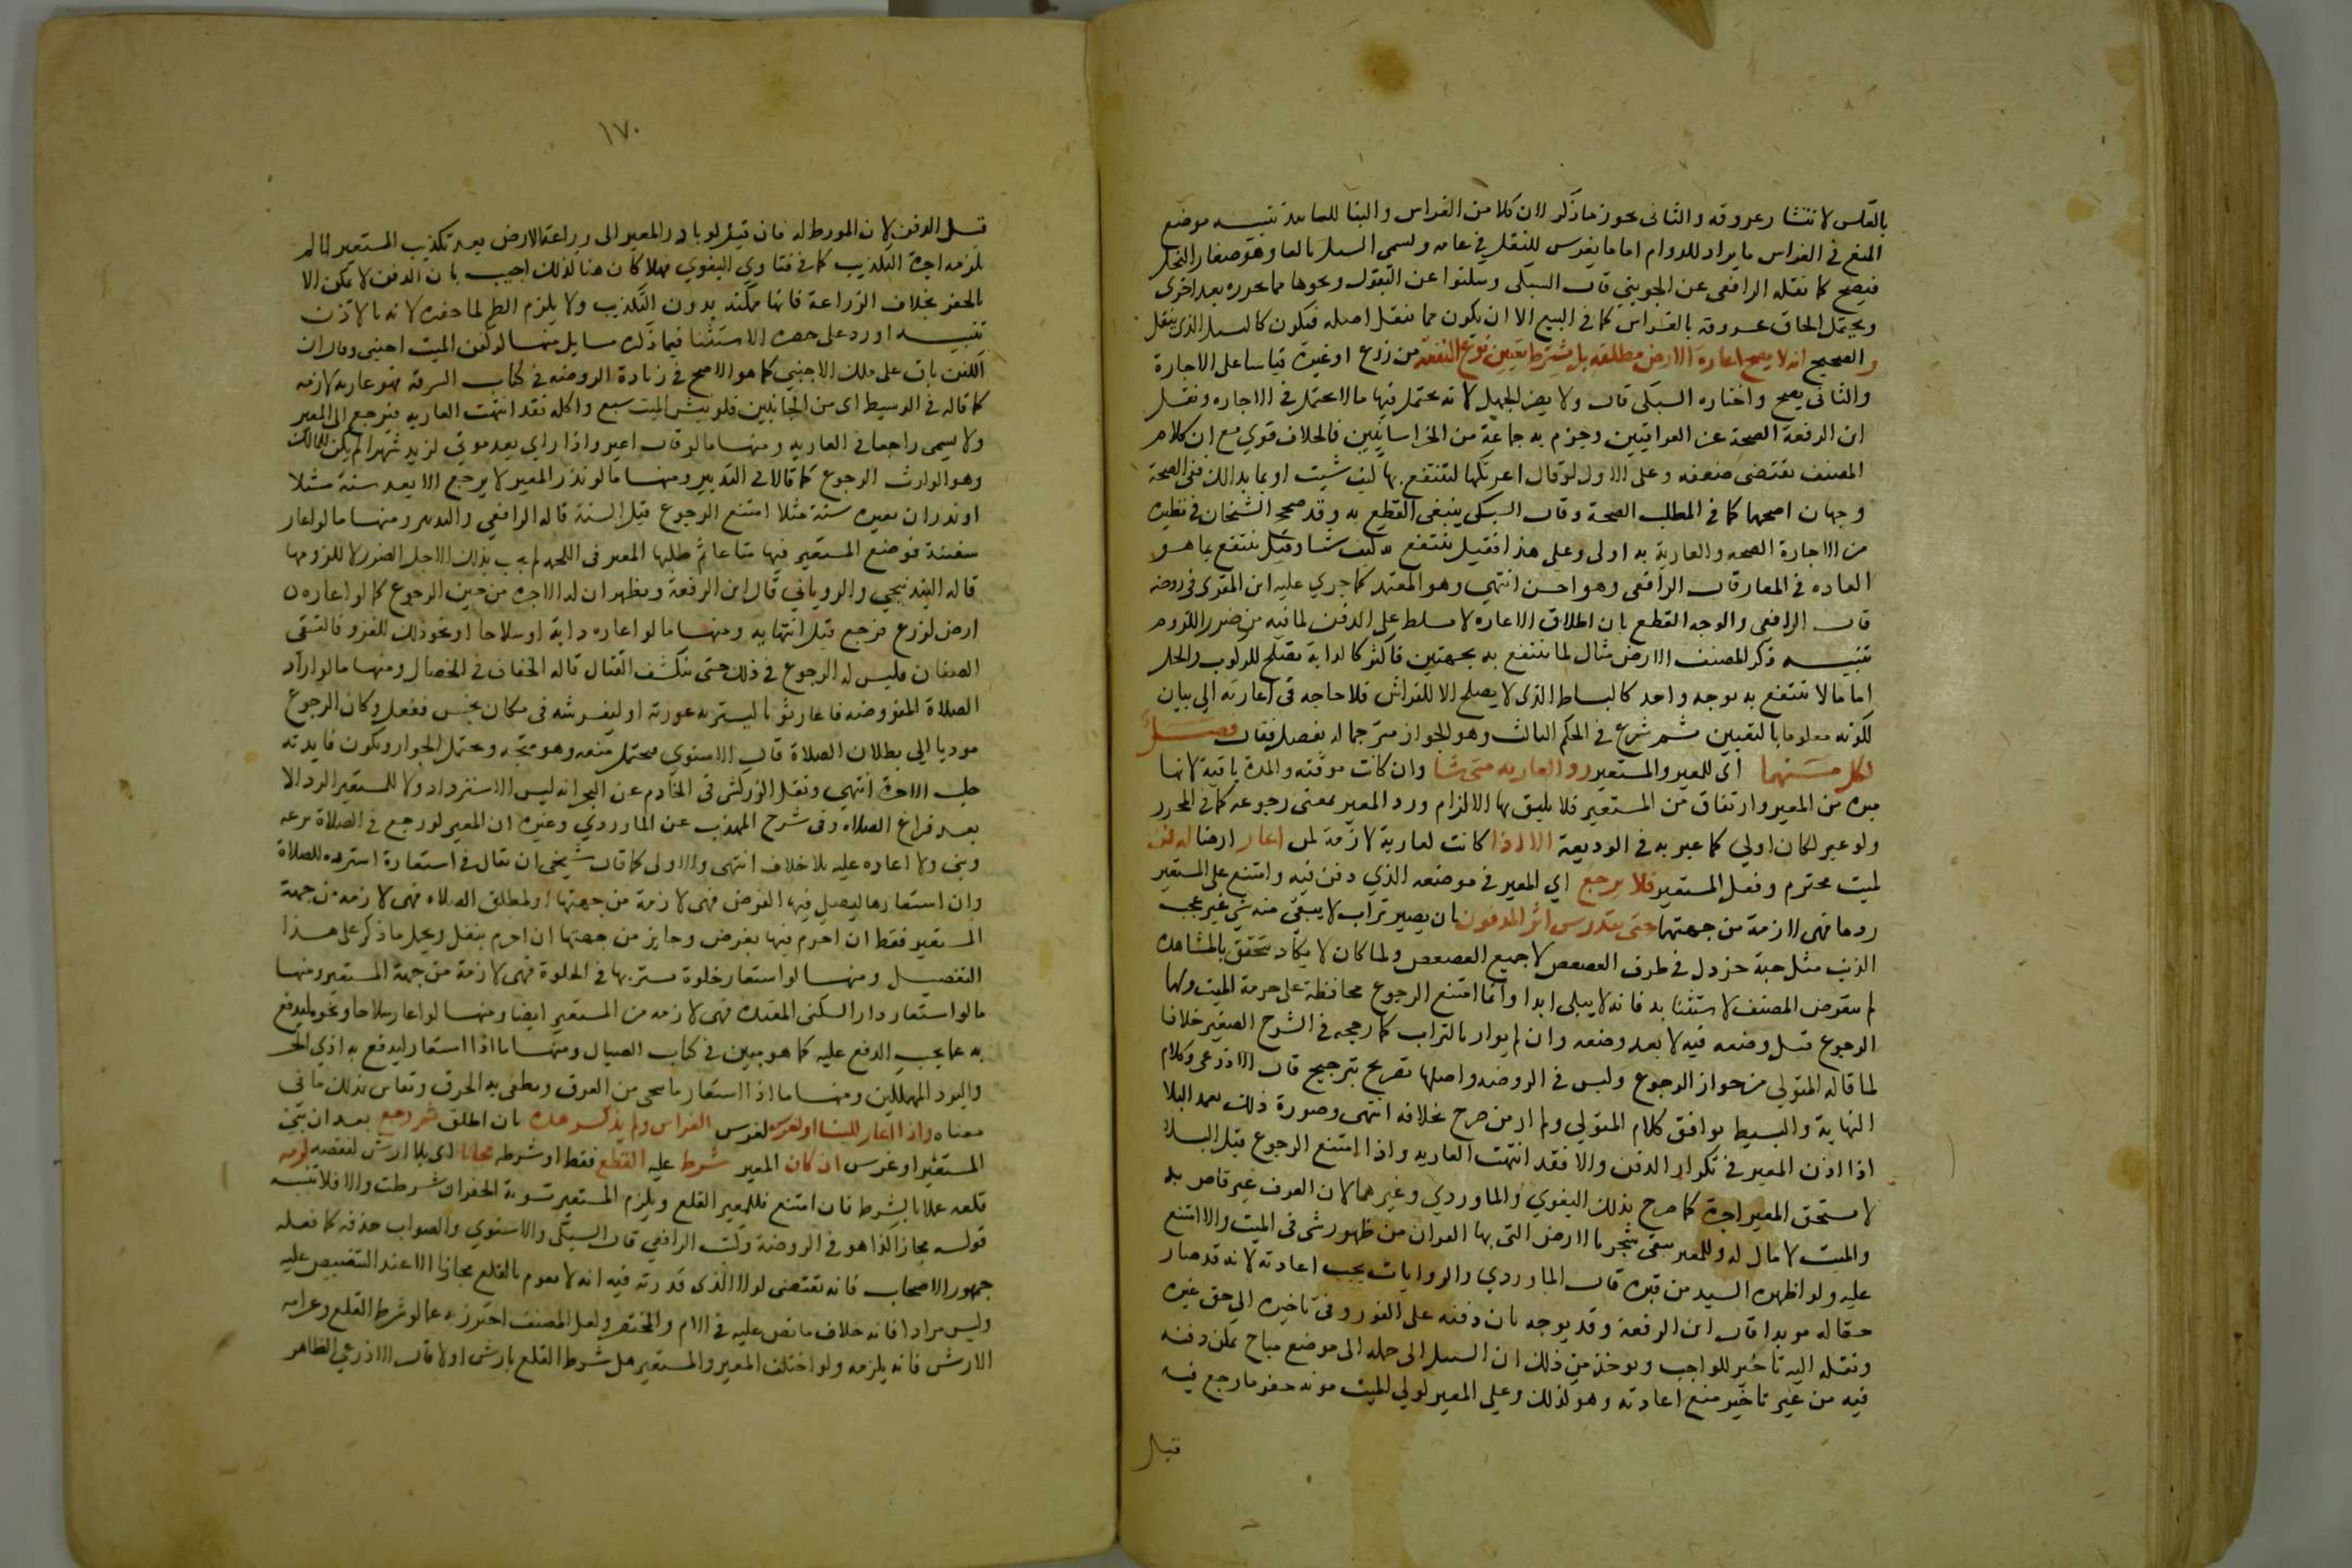 بالعكس لانتشار عروقه والثاني يجوز ما ذكر لان كلا من الغراس والبنا للتابيد تنبيه موضع
المنع في الغراس ما يراد للدوام اما ما يغرس للنقل في عامه ويسمى الفسيل بالفا وهو صغار النخل
فيصح كما نقله الرافعي عن الجويني قال السبكي وسكتوا عن البقول ونحوها مما يجز مرة بعد اخرى
ويحتمل الحاق عروقه بالغراس كما في البيع الا ان يكون مما ينقل اصله فيكون كالفسيل الذي ينقل
والصحيح انه لا يصح اعارة الارض مطلقه بل يشترط تعيين نوع المنفعة من زرع او غيره قياسا على الاجارة
والثاني يصح واختاره السبكي قال ولا يضر الجهل لانه يحتمل فيها ما لا يحتمل في الاجاره ونقل
ابن الرفعة الصحة عن العراقيين وجزم به جماعة من الخراسانيين فالخلاف قوي مع ان كلام
المصنف يقتضي ضعفه وعلى الاول لو قال اعرتكها لتنتفع بها كيف شيت او بما بدالك ففي الصحة
وجهان اصحهما كما في المطلب الصحة وقال السبكي ينبغي القطع به وقد صحح الشيخان في نظيره
من الاجارة الصحه والعارية به اولى وعلى هذا فقيل ينتفع به كيف شا وقيل ينتفع بما هو
العاده في المعار قال الرافعي وهو احسن انتهى وهو المعتمد كما جري عليه ابن المقرى في روضه
قال الرافعي والوجه القطع بان اطلاق الاعاره لا يسلط على الدفن لما فيه من ضرر اللزوم
تنبيه ذكر المصنف الارض مثال لما ينتفع به بجهتين فاكثر كالدابة تصلح للركوب والحمل
اما ما لا ينتفع به بوجه واحد كالبساط الذي لا يصلح الا للفراش فلا حاجه في اعارته الى بيان
لكونه معلوما بالتعيين ثم شرع في الحكم الثالث وهو الجواز مترجما له بفصل فقال فصل
لكل منهما اى للمعير والمستعير رد العاريه متى شا وان كانت موقته والمدة باقية لانها
مبره من المعير وارتفاق من المستعير فلا يليق بها الالزام ورد المعير بمعنى رجوعه كما في المحرر
ولو عبر لكان اولي كما عبر به في الوديعة الا اذا كانت لعارية لازمة لمن اعار ارضا لدفن
لميت محترم وفعل المستعير فلا يرجع اي المعير في موضعه الذي دفن فيه وامتنع على المستعير
ردها فهي لازمة من جهتهما حتى يندرس اثر المدفون بان يصير تراب لا يبقي منه شي غير عجب
الذنب مثل حبة خردل في طرف العصعص لا جميع العصعص ولما كان لا يكاد يتحقق بالمشاهده
لم يتعرض المصنف لاستثنا به فانه لا يبلى ابدا وانما امتنع الرجوع محافظة على حرمة الميت ولها
الرجوع قبل وضعه فيه لا بعد وضعه وان لم يوار بالتراب كما رجحه في الشرح الصغير خلافا
لما قاله المتولي من جواز الرجوع وليس في الروضه واصلها تصريح بترجيح قال الاذرعى وكلام
النهاية والبسيط يوافق كلام المتولي ولم ار من صرح بخلافه انتهى وصورة ذلك بعد البلا
اذا اذن المعير في تكرار الدفن والا فقد انتهت العاريه واذا امتنع الرجوع قبل البلا
لا يستحق المعير اجرة كما صرح بذلك البغوي والماوردي وغيرهما لان العرف غير قاض به
والميت لا مال له وللمعير سقي شجر بالارض التي بها القبر ان امن ظهور شى في الميت والا امتنع
عليه ولو اظهره السيل من قبره قال الماوردي والروياني يجب اعادته لانه قد صار
حقا له موبدا قال ابن الرفعة وقد يوجه بان دفنه على الفور وفي تاخيره الى حق غيره
ونقله اليه تاخير للواجب ويوخذ من ذلك ان السيل ان حمله الى موضع مباح يمكن دفنه
فيه من غير تاخير منع اعادته وهو كذلك وعلي المعير لولي الميت مونه حفر ما رجع فيه
قبل
١٧٠
قبل الدفن لانه المورط له فان قيل لو بادر المعير الى زراعة الارض بعد تكذيب المستعير لها لم
يلزمه اجرة التكذيب كما في فتاوي البغوي فهلا كان هنا كذلك اجيب بان الدفن لا يمكن الا
بالحفر بخلاف الزراعة فانها ممكنه بدون التكذيب ولا يلزم الطم لما حفره لانه بالاذن
تنبيه اورد على حصره الاستثنا فيما ذكره مسايل منها لو كفن الميت اجنبي وقال ان
الكفن باق على ملك الاجنبي كما هو الاصح في زيادة الروضه في كتاب السرقه فهو عاريه لازمه
كما قاله في الوسيط اى من الجانبين فلو نبش الميت سبع واكله فقد انتهت العاريه فيرجع الى المعير
ولا يسمى راجعا في العاريه ومنها ما لو قال اعيروا داري بعد موتي لزيد شهرا لم يكن للمالك
وهو الوارث الرجوع كما قالا في التدبير ومنها ما لو نذر المعير لا يرجع الا بعد سنة مثلا
او نذر ان يعيره سنة مثلا امتنع الرجوع قبل السنة قاله الرافعي والتدبير ومنها ما لو اعار
سفينة فوضع المستعير فيها متاعا ثم طلبها المعير في اللجه لم يجب لذلك لاجل الضرر لا للزومها
قاله البندنيجي والروياني قال ابن الرفعة ويظهر ان له الاجره من حين الرجوع كما لو اعاره
ارض لزرع فرجع قبل انتهايه ومنها ما لو اعاره دابة او سلاحا او نحو ذلك للغزو فالتقى
الصفان فليس له الرجوع في ذلك حتى ينكشف القتال قاله الخفاف في الخصال ومنها ما لو اراد
الصلاة المفروضه فاعاره ثوبا ليستر به عورته او ليفرشه في مكان نجس ففعل وكان الرجوع
موديا الي بطلان الصلاة قال الاسنوي فيحتمل منعه وهو متجه ويحتمل الجواز ويكون فايدته
طلب الاجرة انتهى ونقل الزركشي في الخادم عن البحر انه ليس له الاسترداد ولا للمستعير الرد الا
بعد فراغ الصلاه وفي شرح المهذب عن الماوردي وغيره ان المعير لو رجع في الصلاة نزعه
وبنى ولا اعاده عليه بلا خلاف انتهى والاولى كما قال شيخي ان يقال في استعارة السترة للصلاة
وان استعارها ليصلي فيها الفرض فهى لازمة من جهتها او لمطلق الصلاه فهى لازمه من جهة
المستعير فقط ان احرم فيها بفرض وجايز من جهتها ان احرم بنفل ويحمل ما ذكر على هذا
التفصيل ومنها لو استعار خلوة ستر بها في الخلوة فهى لازمة من جهة المستعير ومنها
ما لو استعار دار السكنى المعتده فهى لازمه من المستعير ايضا ومنها لو اعار سلاحا ونحوه ليدفع
به عما يجب الدفع عليه كما هو مبين في كتاب الصيال ومنها ما اذا استعار ليدفع به اذي الحر
والبرد المهلكين ومنها ما اذا استعار ما ينجي من الغرق ويطفى به الحرق وتقاس بذلك ما في
معناه واذا اعار للبنا او لغرس الغراس ولم يذكر مده بان اطلق ثم رجع بعد ان بني
المستعير او غرس ان كان المعير شرط عليه القطع فقط او شرطه مجانا اي بلا ارش لنقصه لزمه
قلعه عملا بالشرط فان امتنع فللمعير القلع ويلزم المستعير تسوية الحفر ان شرطت والا فلا تنبيه
قوله مجازا كذا هو في الروضة وكتب الرافعي قال السبكي والاسنوي والصواب حذفه كما فعله
جمهور الاصحاب فانه يقتضى لولا الذي قدرته فيه انه لا يعوم بالقلع مجانا الا عند التنصيص عليه
وليس مرادا فانه خلاف ما نص عليه في الام والمختصر ولعل المصنف احترز به عما لو شرط القلع وغرامه
الارش فانه يلزمه ولو اختلف المعير والمستعير هل شرط القلع بارش اولا قال الاذرعي الظاهر